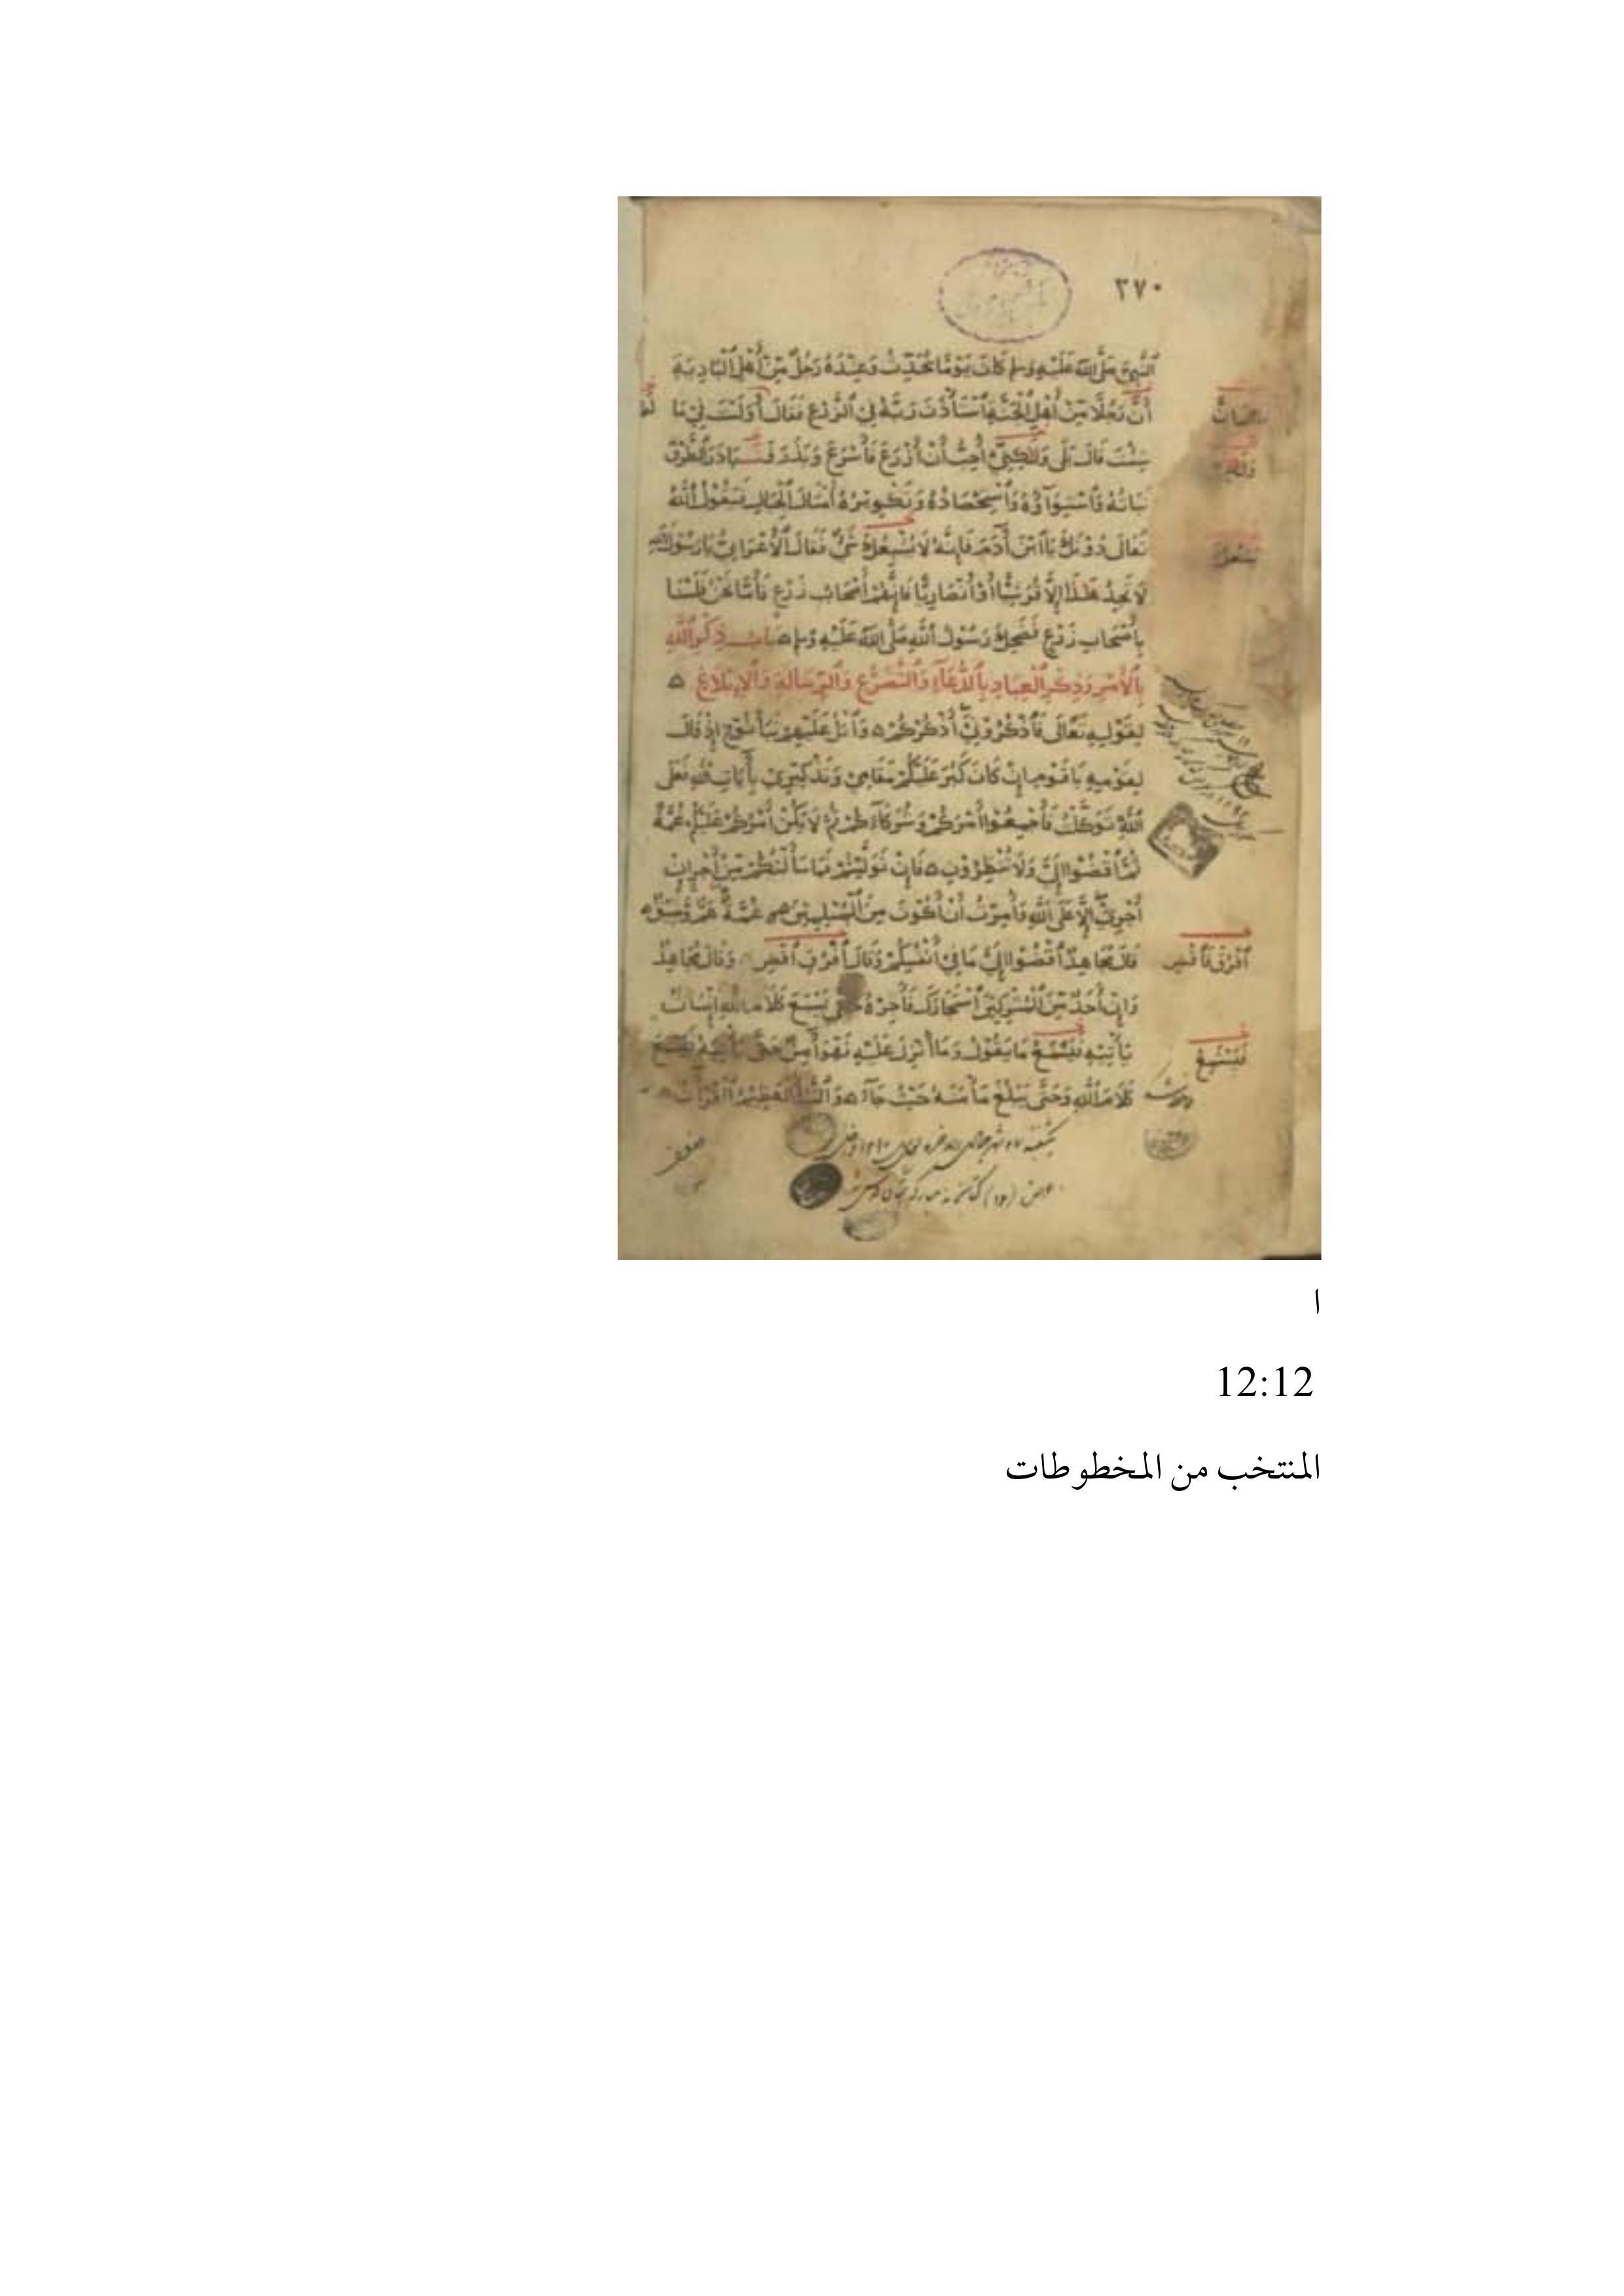 ٢٧٠
النَّبِيَّ صَلَّى اللهُ عَلَيْهِ وَسلم كَانَ يَوْمًا يُحَدِّثُ وَعِنْدَهُ رَجُلٌ مِنْ أَهْلِ الْبَادِيَةِ
أَنَّ رَجُلًا مِنْ أَهْلِ الْجَنَّةِ اسْتَأْذَنَ رَبَّهُ فِي الزَّرْعِ فَقَالَ أَوَلَسْتَ فِي مَا
شِئْتَ قَالَ بَلَى وَلَكِنِّي أُحِبُّ أَنْ أَزْرَعَ فَأَسْرَعَ وَبَذَرَ فَتَبَادَرَ الطَّرْفَ
نَبَاتُهُ وَاسْتِوَاؤُهُ وَاسْتِحْصَادُهُ وَتَكْوِيرُهُ أَمْثَالَ الْجِبَالِ فَيَقُولُ اللهُ
تَعَالَى دُونَكَ يَا ابْنَ آدَمَ فَإِنَّهُ لَا يُشْبِعُكَ شَيْءٌ فَقَالَ الْأَعْرَابِيُّ يَا رَسُولَ اللهِ
لَا تَجِدُ هَذَا إِلَّا قُرَشِيًّا أَوْ أَنْصَارِيًّا فَإِنَّهُمْ أَصْحَابُ زَرْعٍ فَأَمَّا نَحْنُ فَلَسْنَا
بِأَصْحَابِ زَرْعٍ فَضَحِكَ رَسُولُ اللهِ صَلَّى اللهُ عَلَيْهِ وسلم ه بَابُ ذِكْرِ اللهِ
بِالْأَمْرِ وَذِكْرِ الْعِبَادِ بِالدُّعَاءِ وَالتَّضَرُّعِ وَالرِّسَالَةِ وَالْإِبْلَاغِ ه
لِقَوْلِهِ تَعَالَى فَاذْكُرُونِي أَذْكُرْكُمْ ه وَاتْلُ عَلَيْهِمْ نَبَأَ نُوحٍ إِذْ قَالَ
لِقَوْمِهِ يَا قَوْمِ إِنْ كَانَ كَبُرَ عَلَيْكُمْ مَقَامِي وَتَذْكِيرِي بِآيَاتِ اللهِ فَعَلَى
اللهِ تَوَكَّلْتُ فَأَجْمِعُوا أَمْرَكُمْ وَشُرَكَاءَكُمْ ثُمَّ لَا يَكُنْ أَمْرُكُمْ عَلَيْكُمْ غُمَّةً
ثُمَّ اقْضُوا إِلَيَّ وَلَا تُنْظِرُونِ ه فَإِنْ تَوَلَّيْتُمْ فَمَا سَأَلْتُكُمْ مِنْ أَجْرٍ إِنْ
أَجْرِيَ إِلَّا عَلَى اللهِ وَأُمِرْتُ أَنْ أَكُونَ مِنَ الْمُسْلِمِينَ ه غُمَّةٌ هَمٌّ وَضِيقٌ ه
قَالَ مُجَاهِدٌ اقْضُوا إِلَيَّ مَا فِي أَنْفُسِكُمْ وَقَالَ افْرُقِ اقْضِ وَقَالَ مُجَاهِدٌ
افْرُقْ فَاقْضِ
وَإِنْ أَحَدٌ مِنَ الْمُشْرِكِينَ اسْتَجَارَكَ فَأَجِرْهُ حَتَّى يَسْمَعَ كَلَامَ اللهِ إِنْسَانٌ
يَأْتِيهِ فَيَسْتَمِعُ مَا يَقُولُ وَمَا أُنْزِلَ عَلَيْهِ فَهُوَ آمِنٌ حَتَّى يَأْتِيَهُ فَيَسْمَعَ
فَيَسْتَمِعُ
كَلَامَ اللهِ وَحَتَّى يَبْلُغَ مَأْمَنَهُ حَيْثُ جَاءَ ه وَالنَّبَأُ الْعَظِيمُ الْقُرْآنُ
ا
12:12
المنتخب من المخطوطات